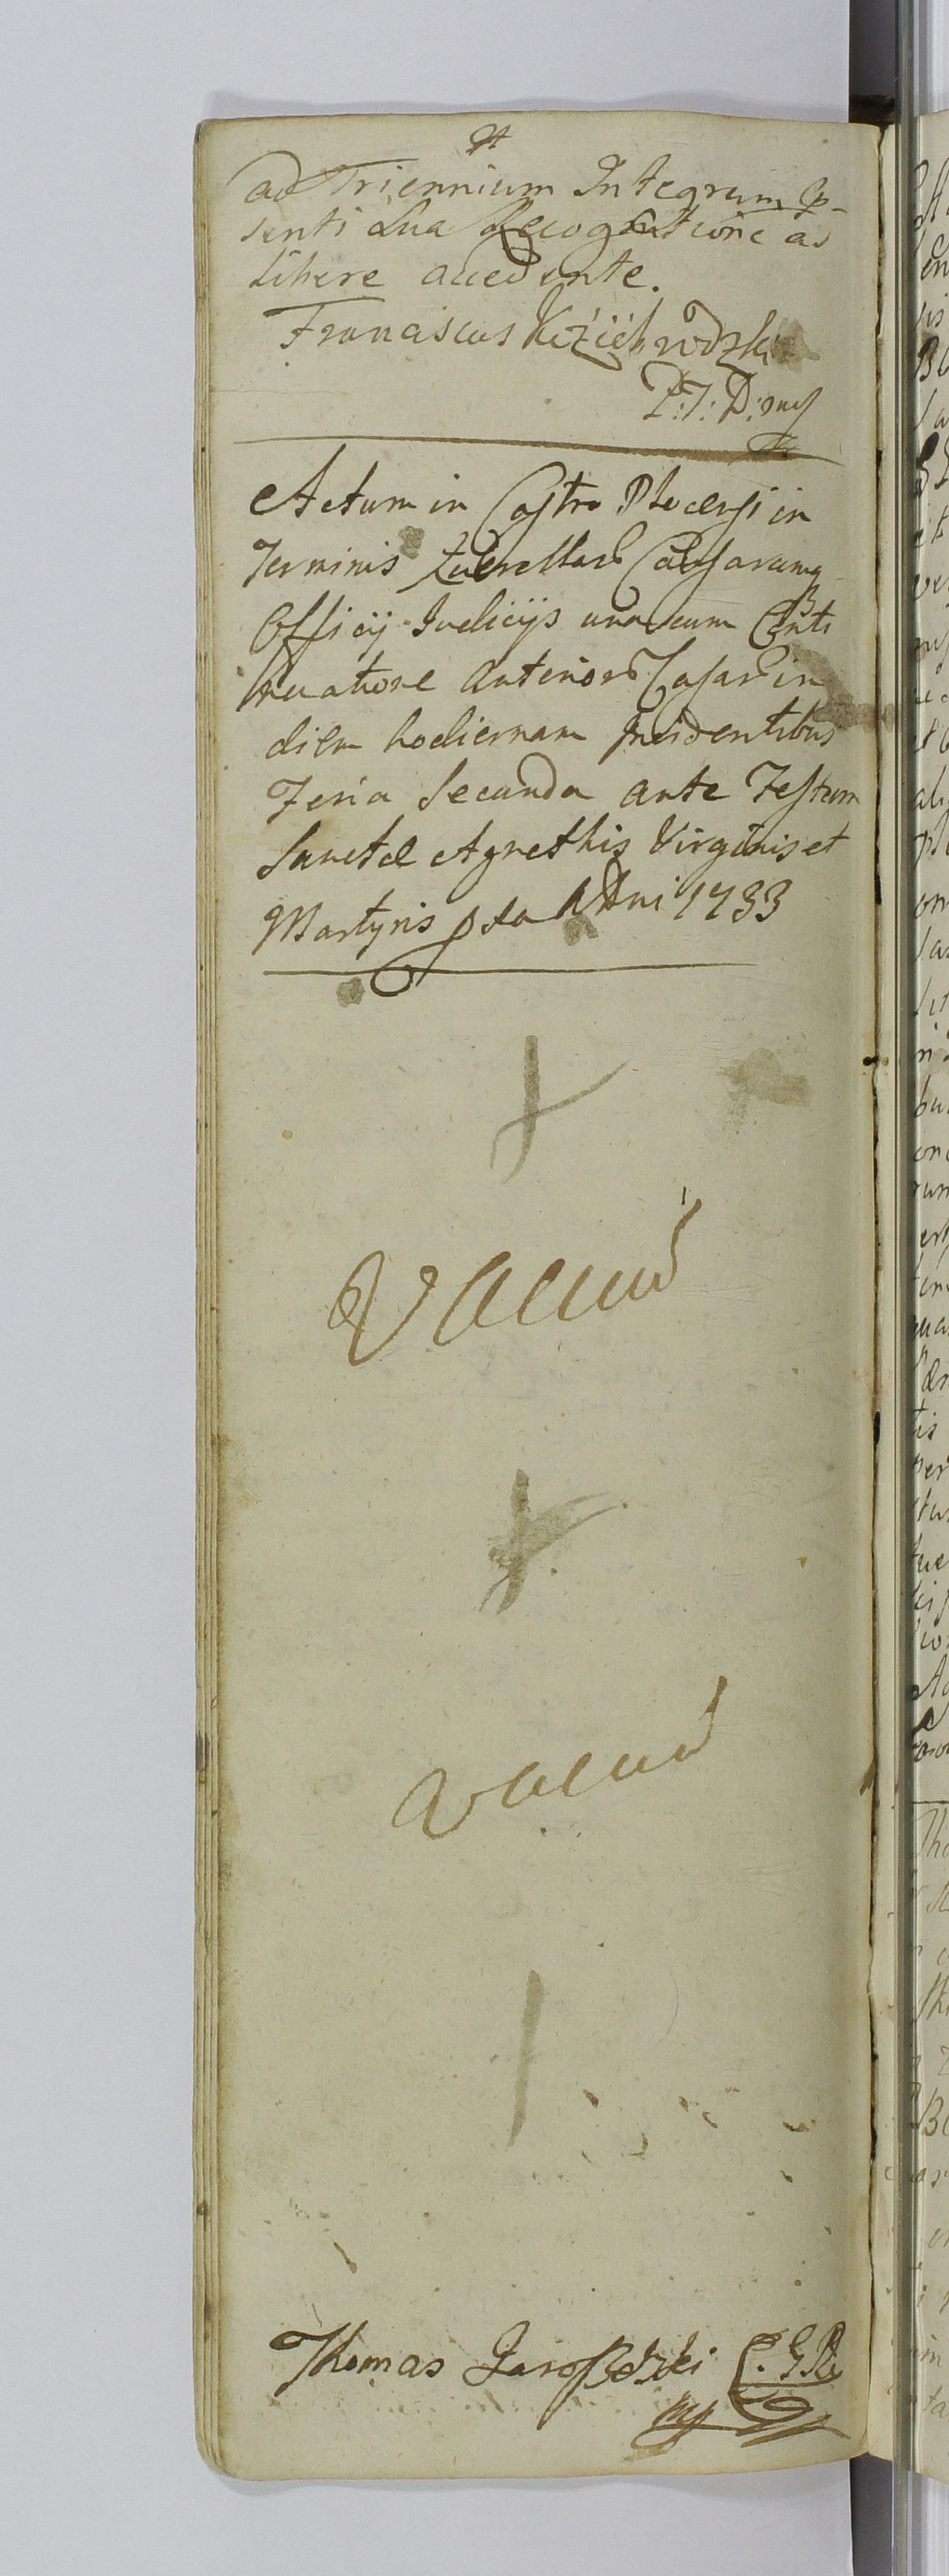 ad Triennium Integrum p-
senti Sua Recognitione ad
libere accedente.
Franciscus
P: J: D: mp
Actum in Castro Plocensi in
Terminis Querellarū Causarumq
Officij Judicijs una cum Conti
nuatione anteriorū Causarū in
diem hodiernam incidentibus
Feria Secunda ante Festum
Sanctæ Agnethis Virginis et
Martyris pda A Dni 1733
Vacuū
vacuū
Thomas C. G. P.
mp